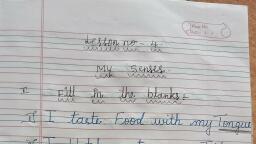 Lesson no - 4
My Senses
I Fill in the blanks :-
I taste Food with my Tongue